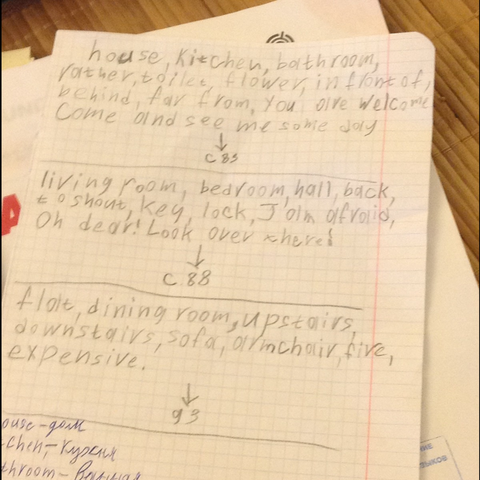 house, kitchen, bathroom,
rather, toilet, flower, in front of,
behind, far from, you are welcome
Come and see me some day
c 85
living room, bedroom, hall, back,
to shout, key, lock, J'am afraid,
Oh dear! Look over there!
c 88
flat, dining room, upstairs,
downstairs, sofa, armchair, five,
expensive.
93
ouse-дом
chen,-кухня
throom-Ванная